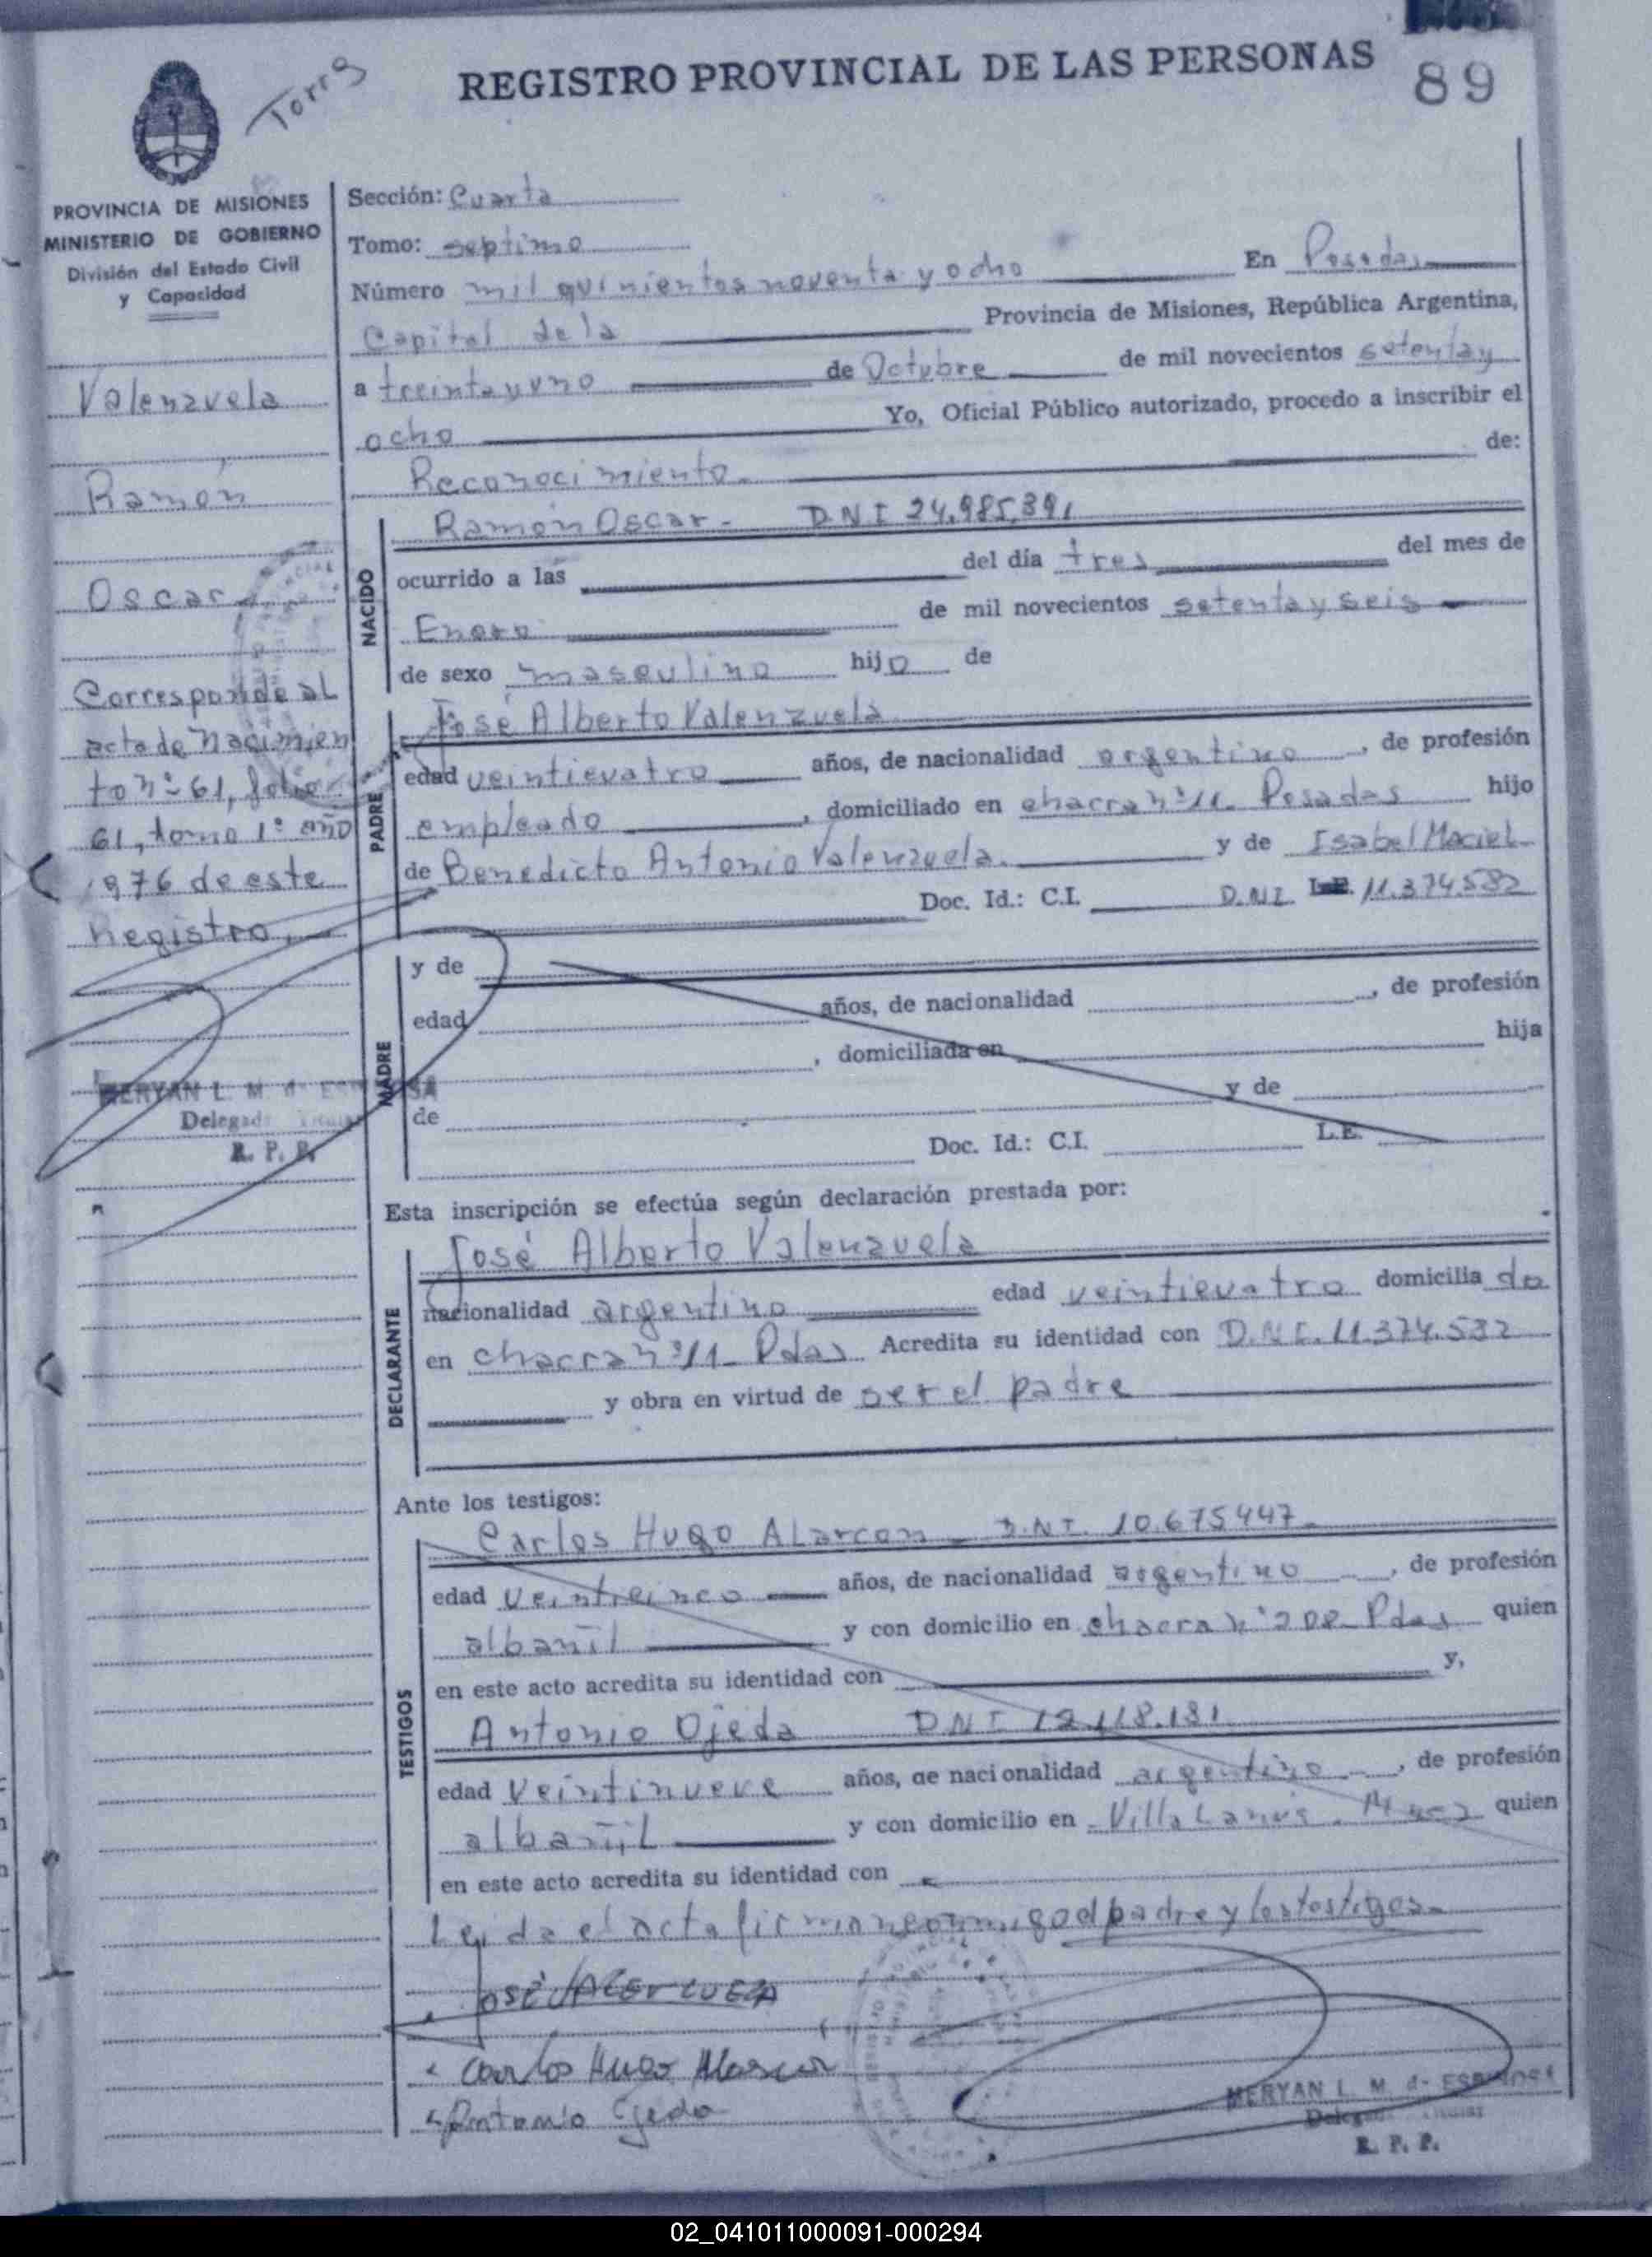 REGISTRO PROVINCIAL DE LAS PERSONAS
89
PROVINCIA DE MISIONES
MINISTERIO DE GOBIERNO
División del Estado Civil
y Capacidad
Valenzuela
Ramón
Oscar
Corresponde al
acta de nacimien
to nº 61, folio
61, tomo 1º año
1976 de este
Registro.
MERYAN L. M. de ESPINOSA
Delegada Titular
R. P. P.
Sección: Cuarta
Tomo: septimo
Número mil quinientos noventa y ocho En Posadas
Capital de la Provincia de Misiones, República Argentina,
a treinta y uno de Octubre de mil novecientos setenta y
ocho Yo, Oficial Público autorizado, procedo a inscribir el
Reconocimiento de:
NACIDO
Ramón Oscar - DNI 24.985.391
ocurrido a las del día tres del mes de
Enero de mil novecientos setenta y seis
de sexo masculino hijo de
PADRE
José Alberto Valenzuela
edad veinticuatro años, de nacionalidad argentino, de profesión
empleado, domiciliado en chacra nº 11 Posadas hijo
de Benedicto Antonio Valenzuela y de Isabel Maciel
Doc. Id.: C.I. D.N.I. L.E. 11.374.532
MADRE
y de
edad años, de nacionalidad , de profesión
, domiciliada en hija
de y de
Doc. Id.: C.I. L.E.
Esta inscripción se efectúa según declaración prestada por:
DECLARANTE
José Alberto Valenzuela
nacionalidad argentino edad veinticuatro domicilia do
en chacra nº 11 Pdas Acredita su identidad con D.N.I. 11.374.532
y obra en virtud de ser el padre
Ante los testigos:
TESTIGOS
Carlos Hugo Alarcon - D.N.I. 10.675.447
edad veinticinco años, de nacionalidad argentino, de profesión
albañil y con domicilio en chacra nº 208 Pdas quien
en este acto acredita su identidad con y,
Antonio Ojeda DNI 12.118.181
edad veintinueve años, de nacionalidad argentino, de profesión
albañil y con domicilio en Villa Lanús quien
en este acto acredita su identidad con
Leida el acta firman conmigo el padre y los testigos.
JOSÉ VALENZUELA
Carlos Hugo Alarcon
Antonio Ojeda
MERYAN L. M. de ESPINOSA
Delegada Titular
R. P. P.
02_041011000091-000294